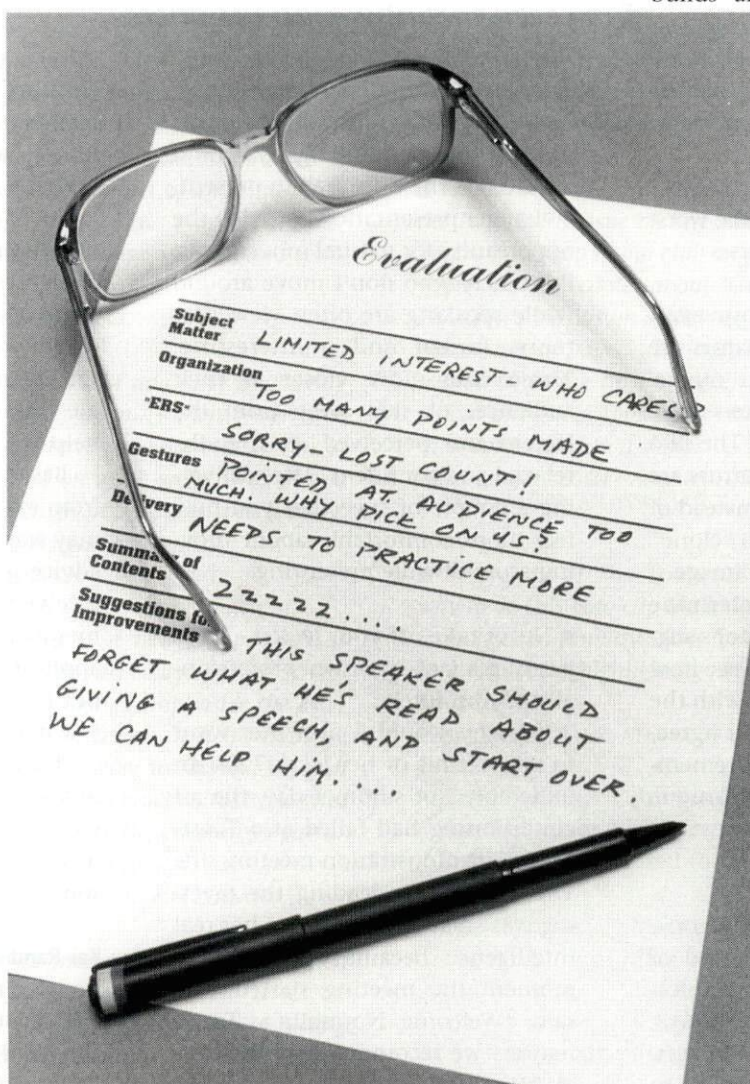 Evaluation
Subject
Matter LIMITED INTEREST WHO CARES?
Organization TOO MANY POINTS MADE
"ERS" SORRY - LOST COUNT!
Gestures POINTED AT AUDIENCE TOO
MUCH. WHY PICK ON US?
Delivery NEEDS TO PRACTICE MORE
Summary of
Contents ZZZZZ....
Suggestions for
Improvements THIS SPEAKER SHOULD
FORGET WHAT HE'S READ ABOUT
GIVING A SPEECH, AND START OVER.
WE CAN HELP HIM....